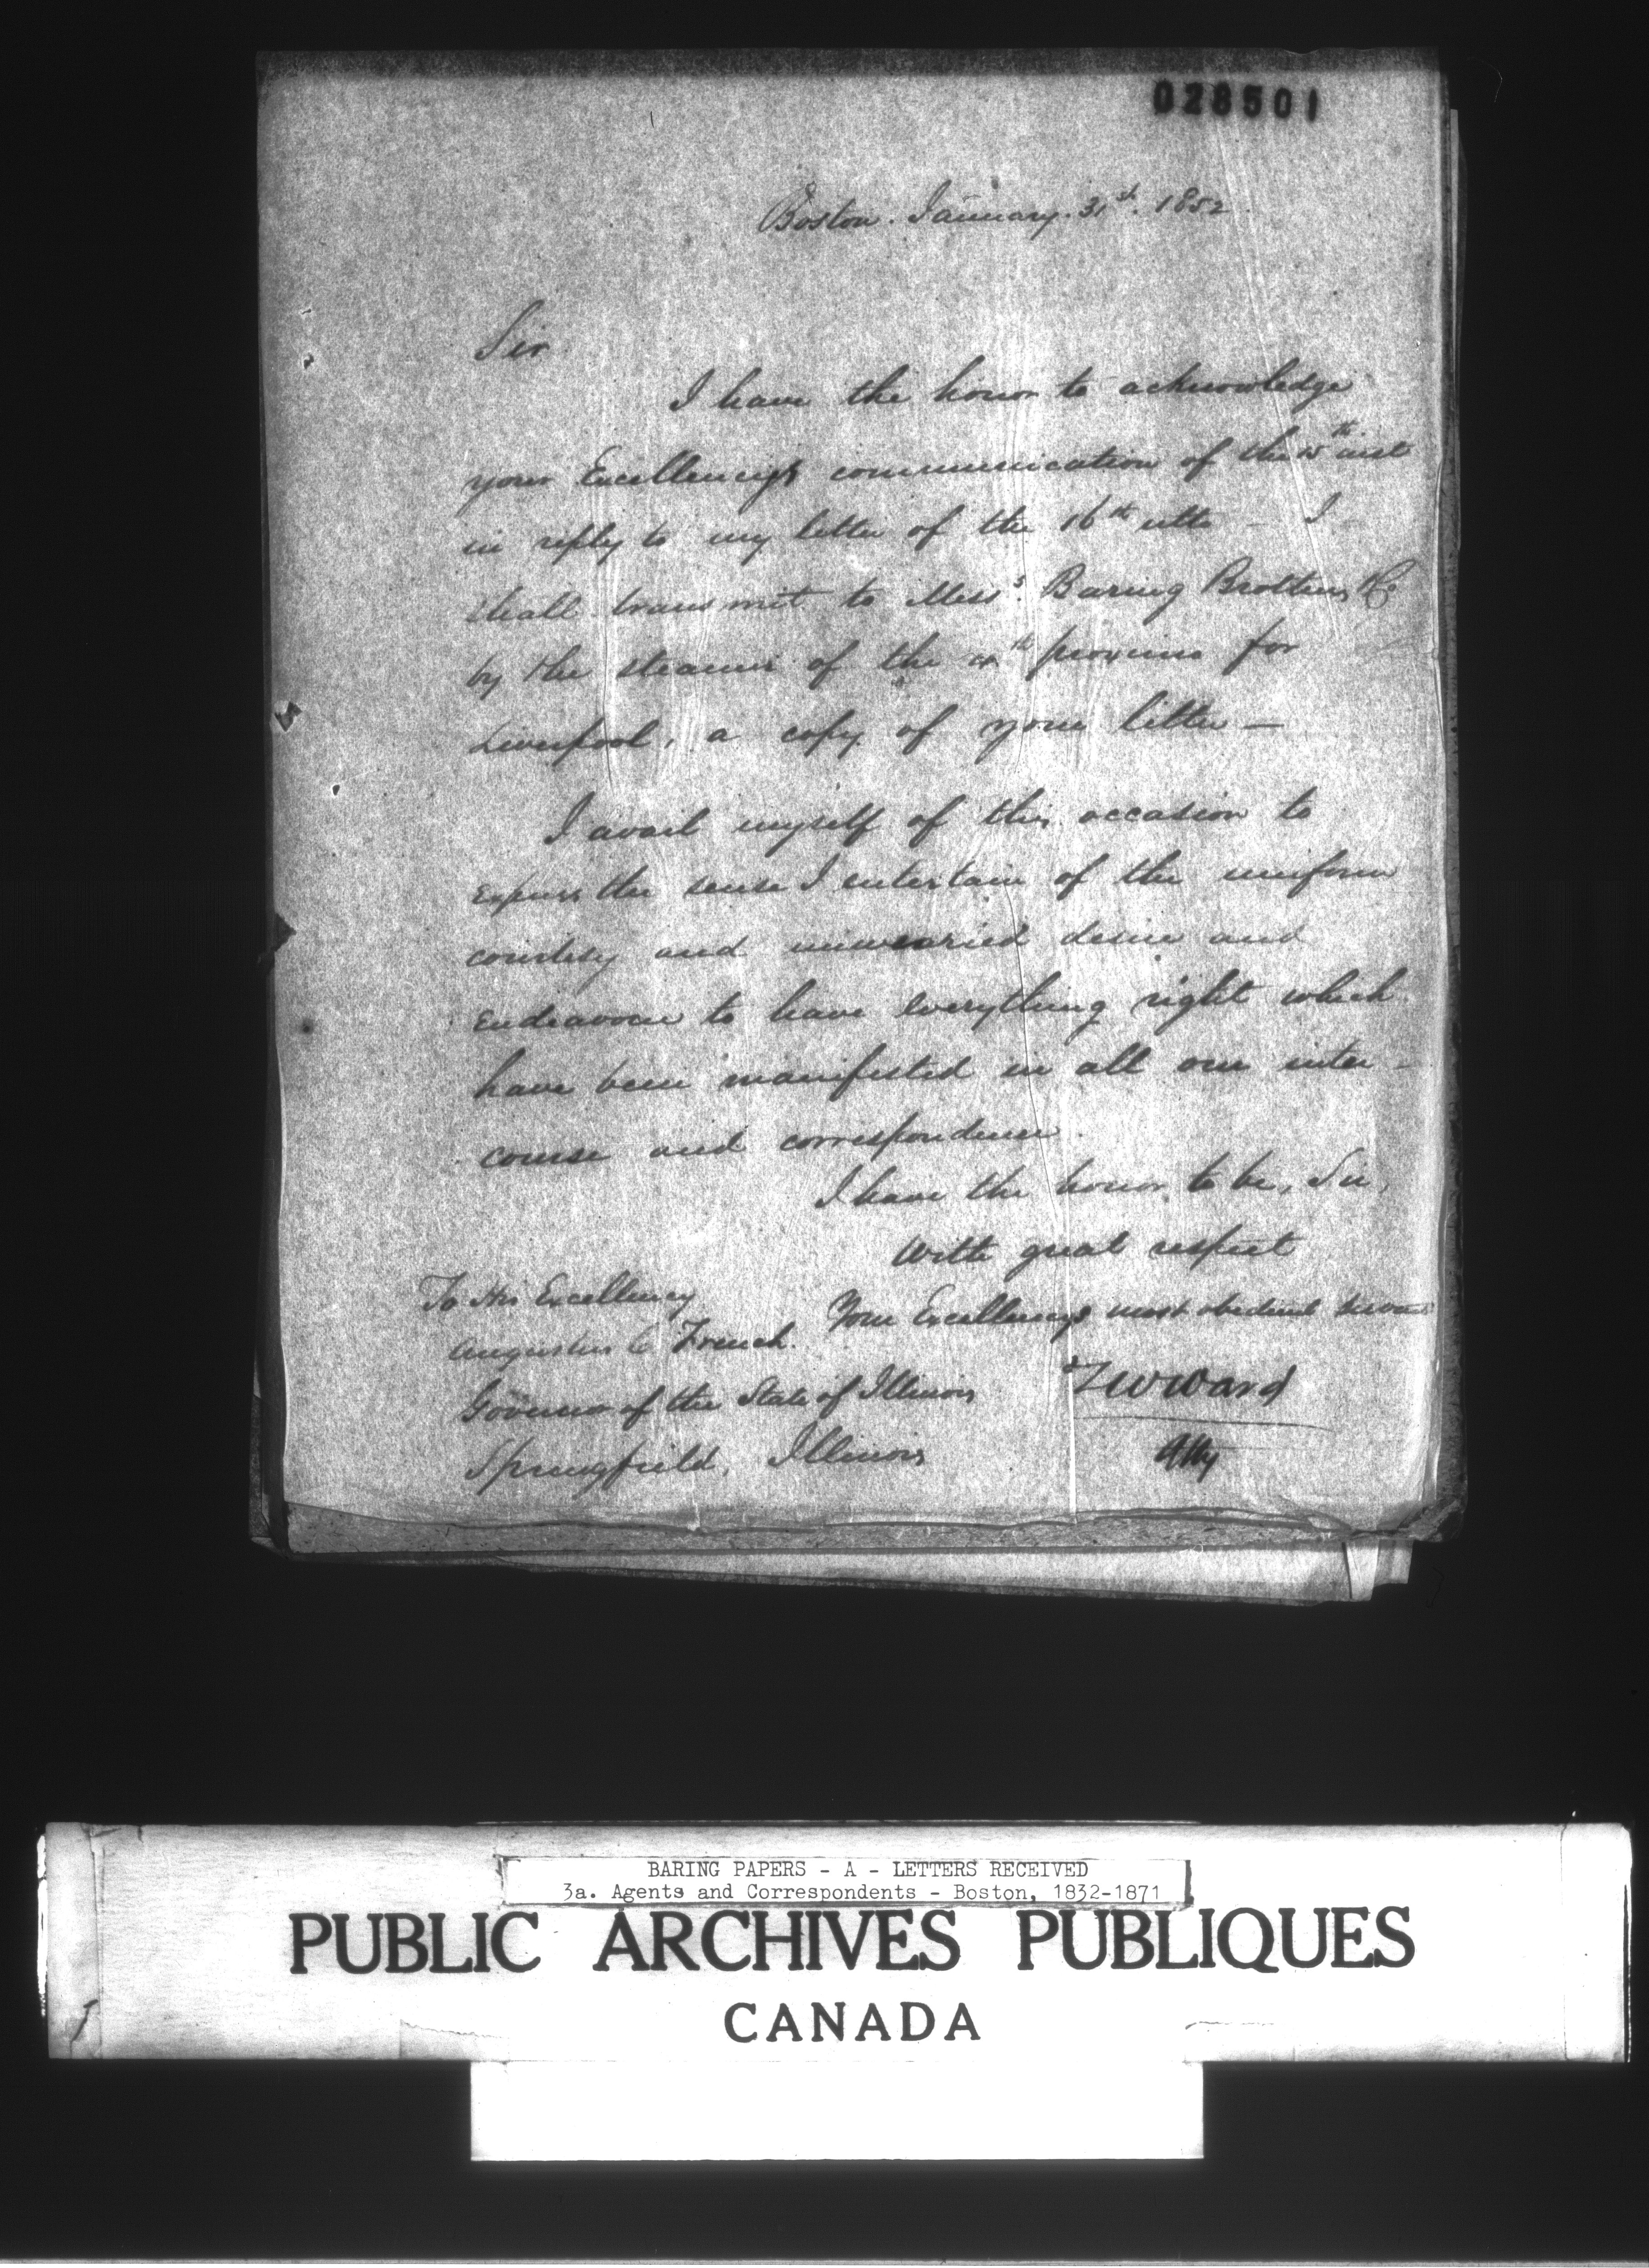 028501
Boston. January. 31st. 1852.
Sir
I have the honor to acknowledge
your Excellency's communication of the inst
in reply to my letter of the 16th ulto — I
shall transmit to Messs. Baring Brothers & Co
by the steamer of the proximo for
Liverpool, a copy of your letter —
I avail myself of this occasion to
express the sense I entertain of the uniform
courtesy and unwearied desire and
endeavour to have everything right which
have been manifested in all our inter-
course and correspondence.
I have the honor to be, Sir,
With great respect
Your Excellencys most obedient servant
T W Ward
Atty
To His Excellency
Augustus C French.
Governor of the State of Illinois
Springfield, Illinois
BARING PAPERS - A - LETTERS RECEIVED
3a. Agents and Correspondents - Boston, 1832-1871
PUBLIC ARCHIVES PUBLIQUES
CANADA